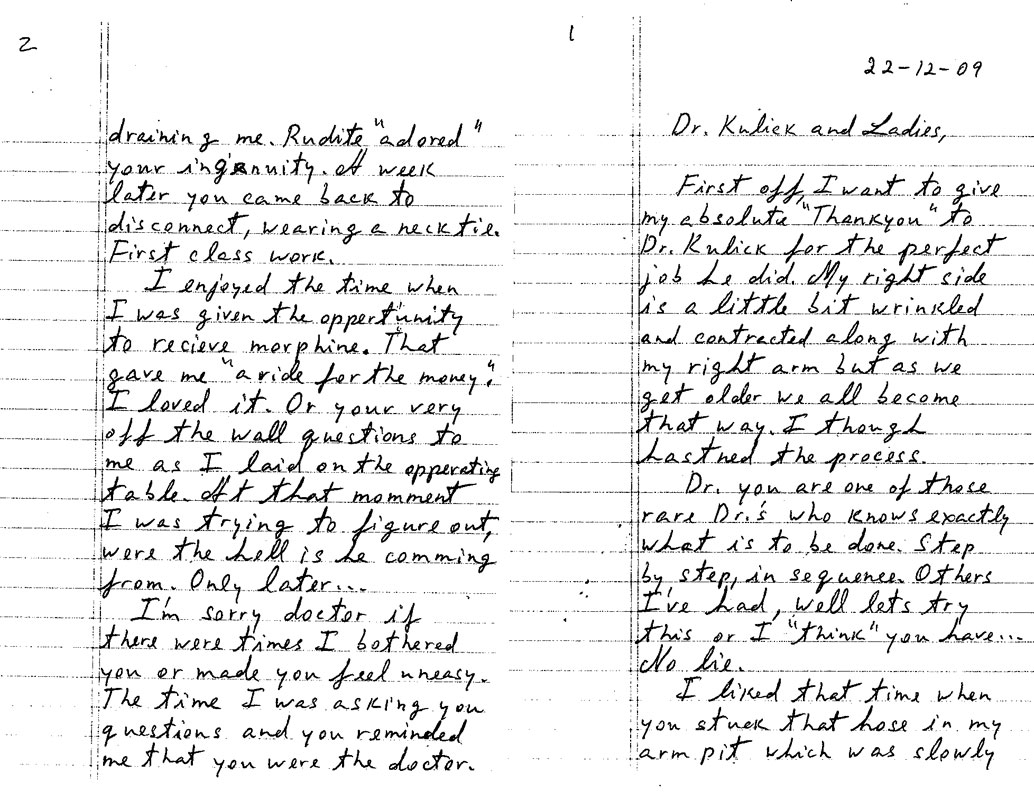 1
22-12-09
Dr. Kulick and Ladies,
First off, I want to give
my absolute "Thankyou" to
Dr. Kulick for the perfect
job he did. My right side
is a little bit wrinkled
and contracted along with
my right arm but as we
get older we all become
that way. I though
hastned the process.
Dr. you are one of those
rare Dr.'s who knows exactly
what is to be done. Step
by step, in sequence. Others
I've had, well lets try
this or I "think" you have...
No lie.
I liked that time when
you stuck that hose in my
arm pit which was slowly
2
draining me. Rudite "adored"
your ingenuity. A week
later you came back to
disconnect, wearing a neck tie.
First class work.
I enjoyed the time when
I was given the oppertunity
to recieve morphine. That
gave me "a ride for the money".
I loved it. Or your very
off the wall questions to
me as I laid on the opperating
table. At that momment
I was trying to figure out,
were the hell is he comming
from. Only later...
I'm sorry doctor if
there were times I bothered
you or made you feel uneasy.
The time I was asking you
questions and you reminded
me that you were the doctor.